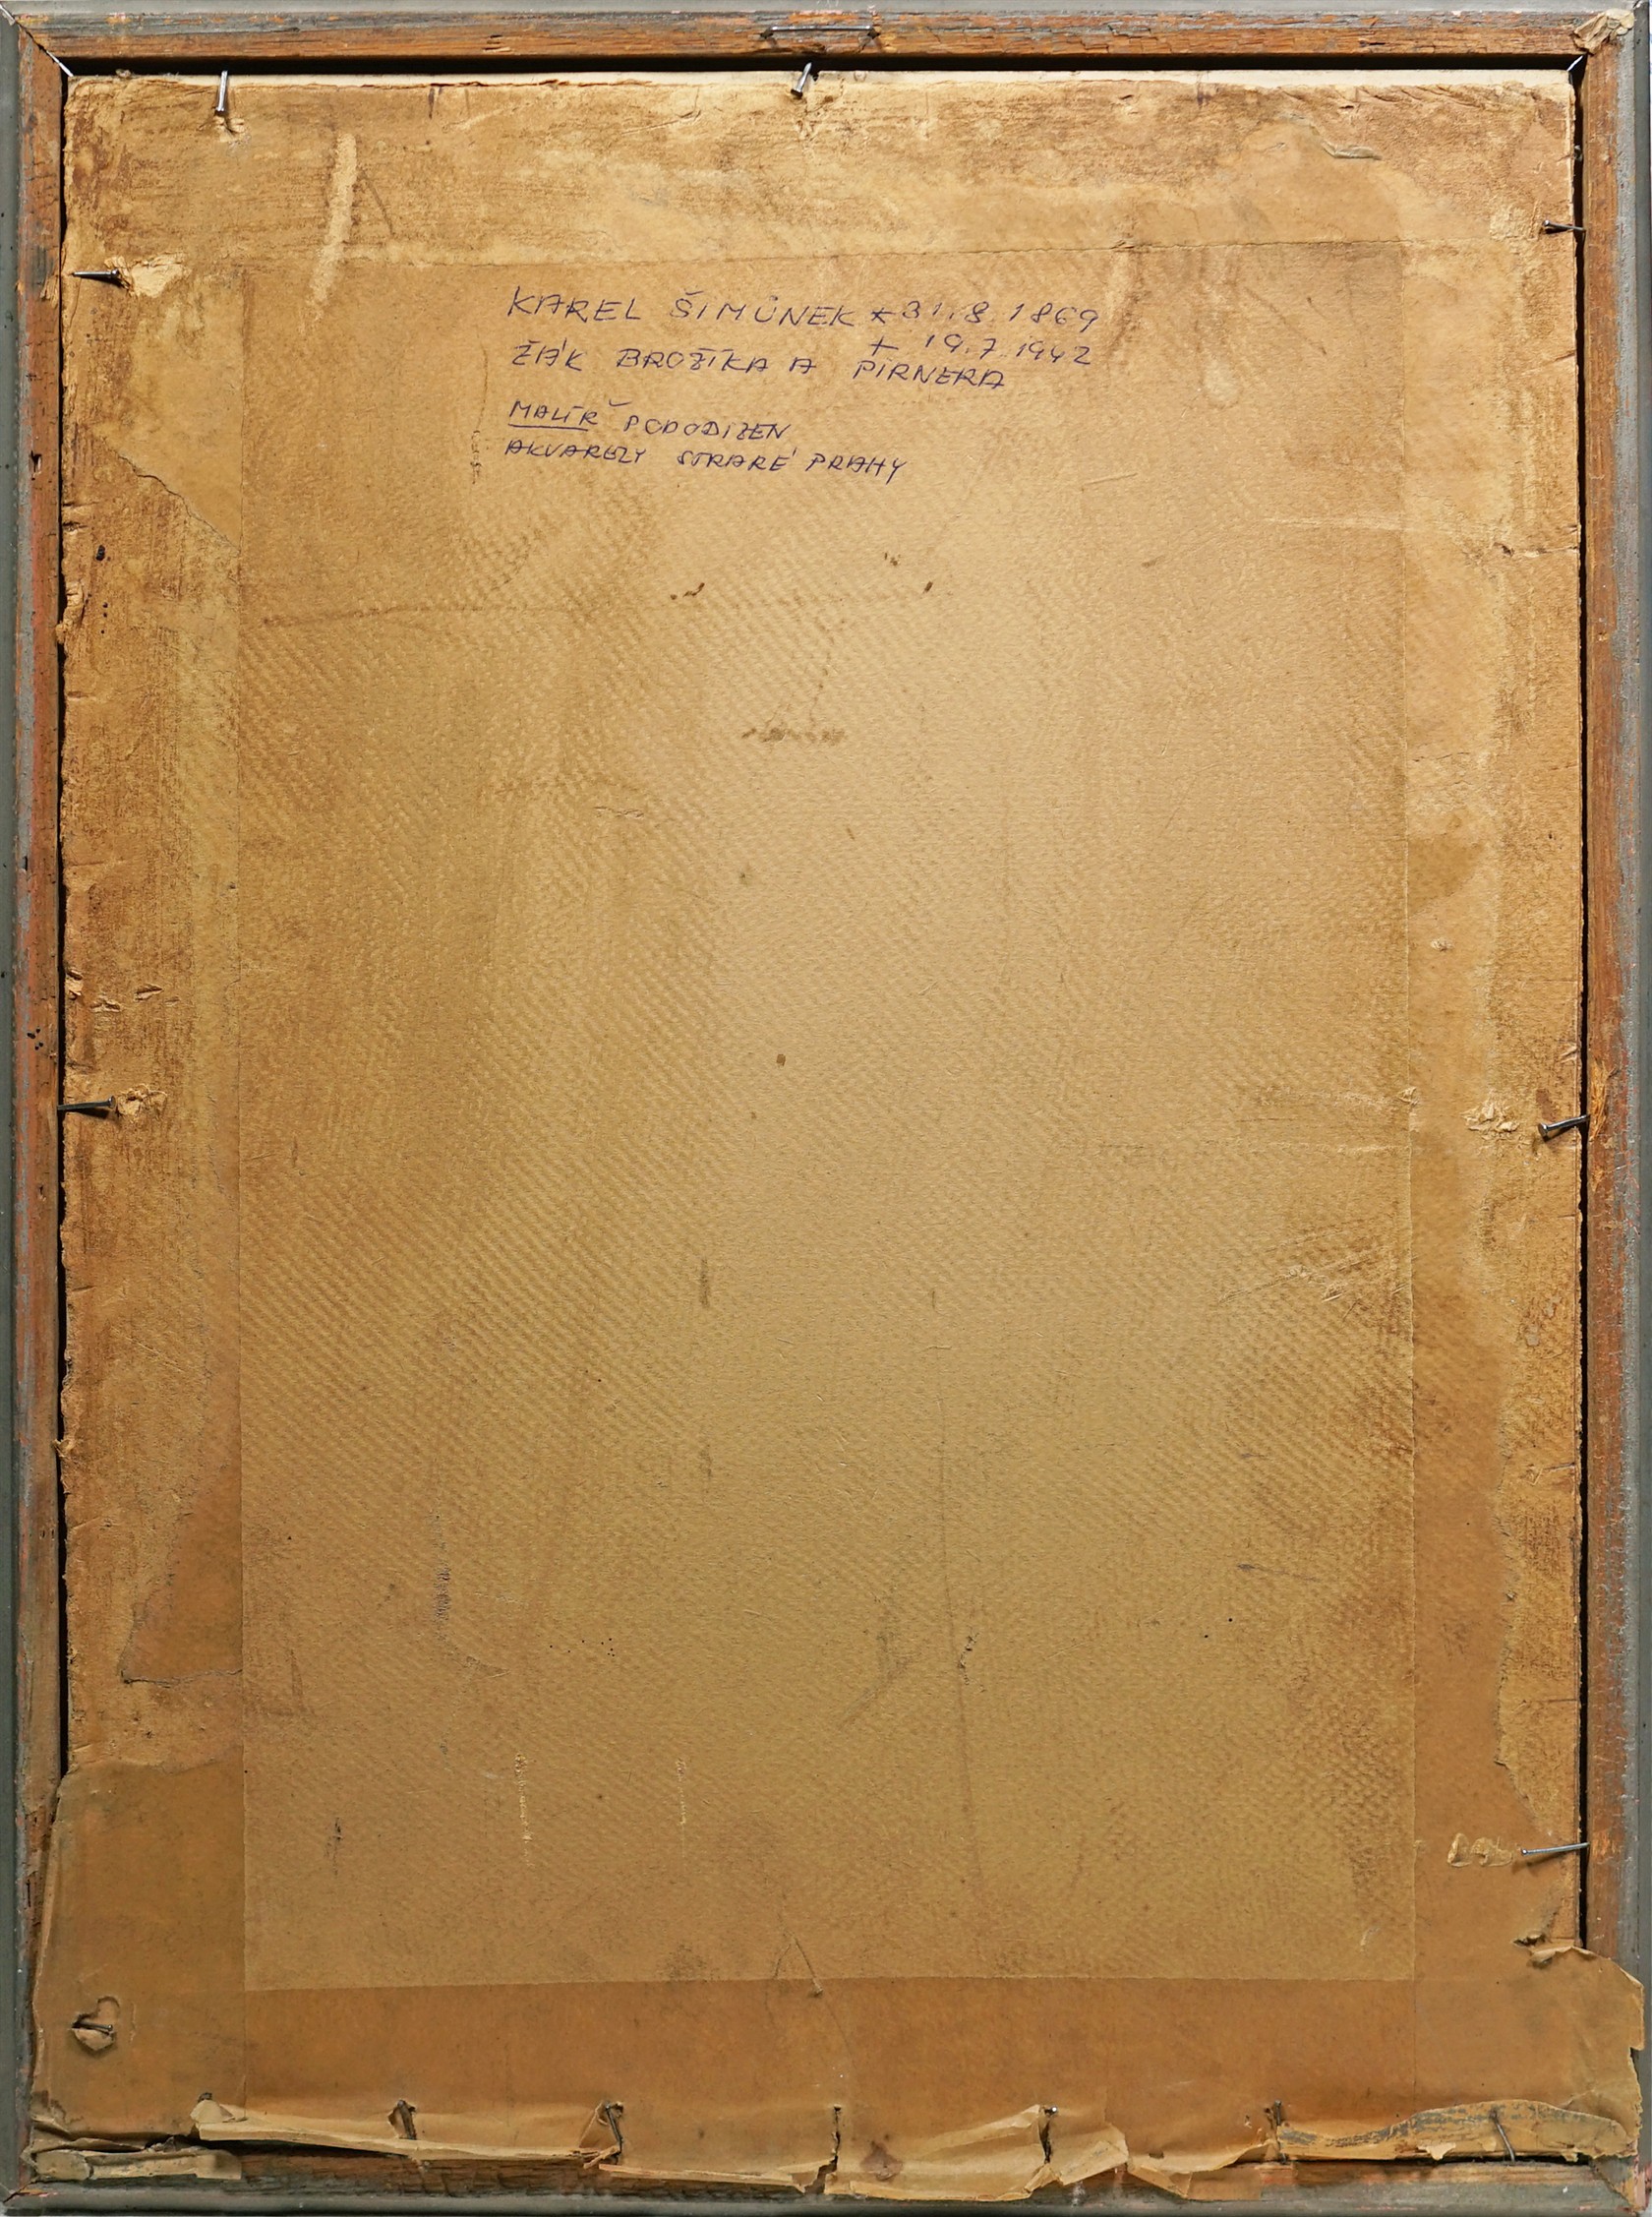 KAREL ŠIMŮNEK * 31.8.1869
+ 19.7.1942
ŽÁK BROŽÍKA A PIRNERA
MALÍŘ PODOBIZEN
AKVARELY STARÉ PRAHY